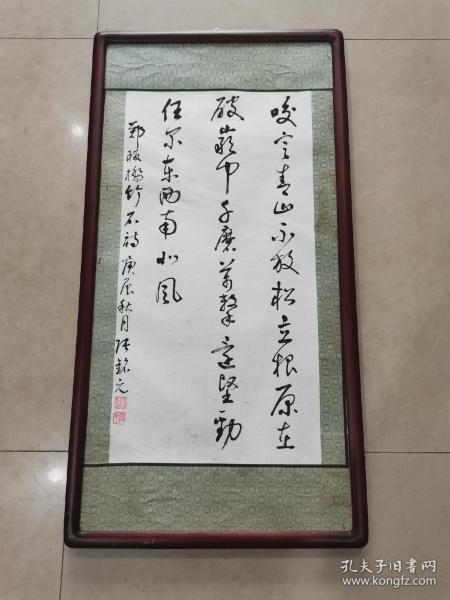 咬定青山不放松立根原在
破岩中千磨万擊还堅勁
任尔东西南北风
郑板橋竹石诗庚辰秋月张銘元
孔夫子旧书网
www.kongfz.com